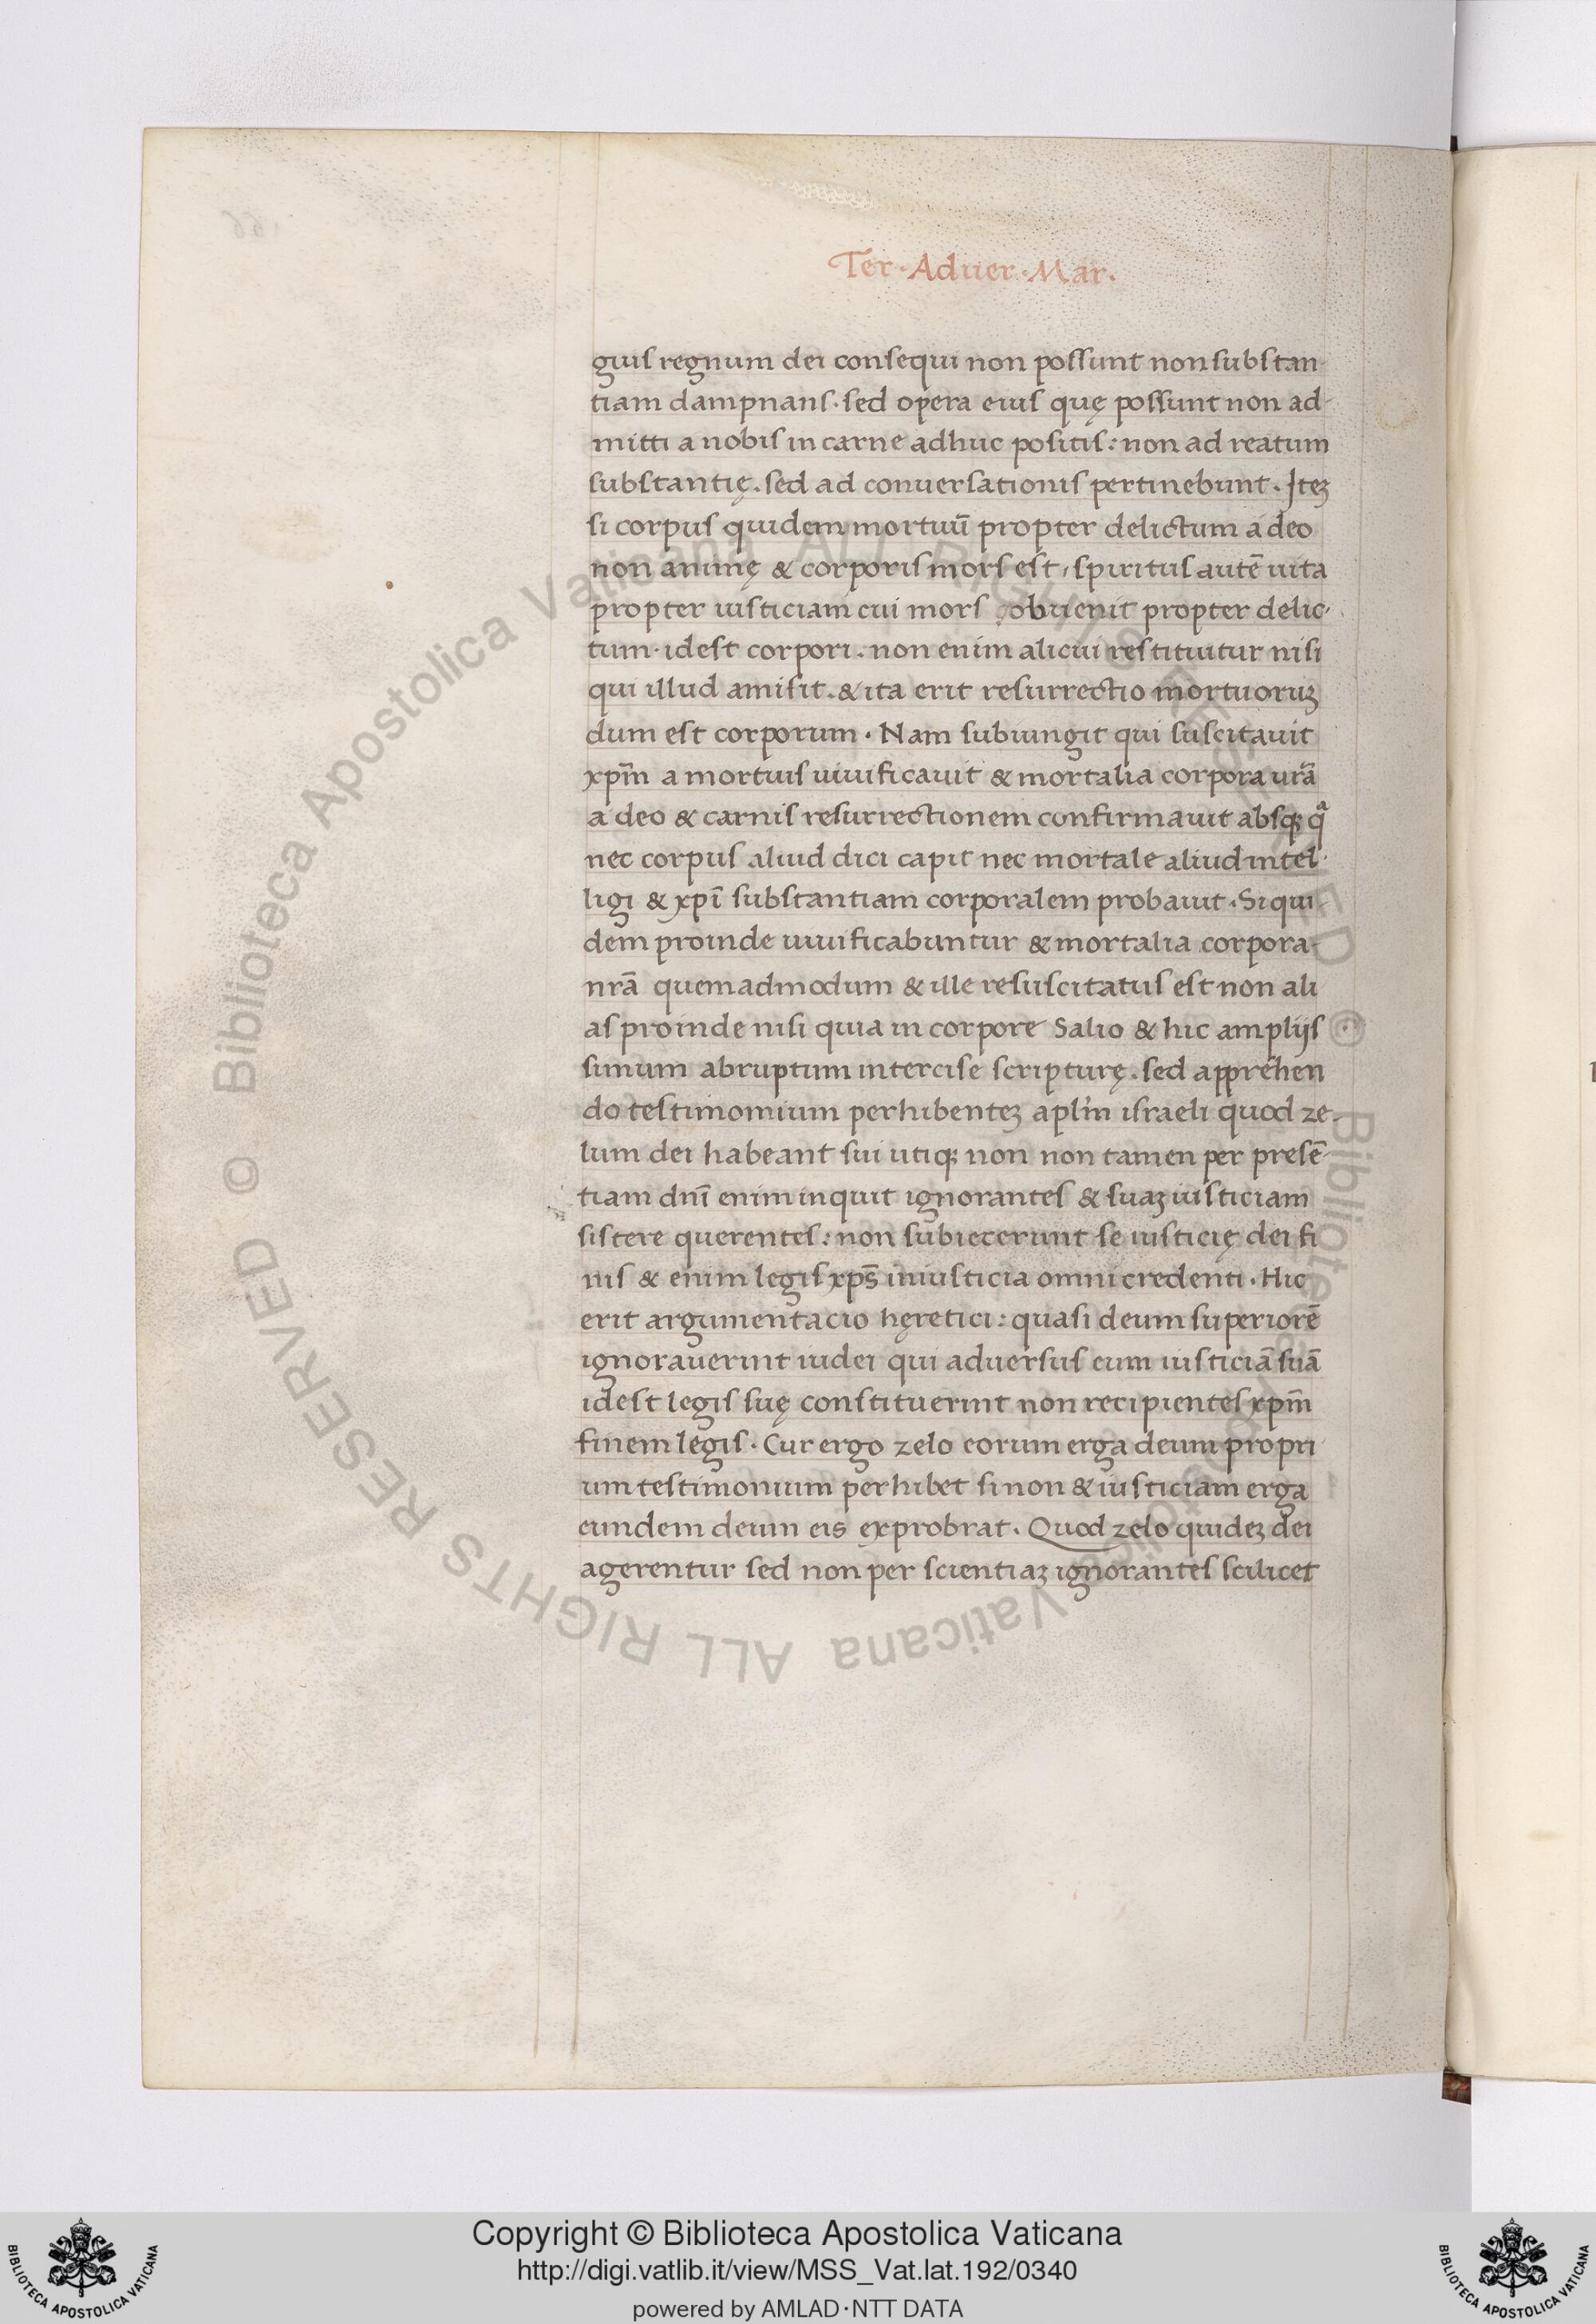 Ter · Aduer · Mar .
guis regnum dei consequi non possunt non substan-
tiam dampnans · sed opera eius quę possunt non ad-
mitti a nobis in carne adhuc positis : non ad reatum
substantię . sed ad conuersationis pertinebunt . Iteꝫ
si corpus quidem mortuū propter delictum a deo
non animę & corporis mors est , spiritus autē uita
propter iusticiam cui mors obuenit propter delic-
tum · idest corpori . non enim alicui restituitur nisi
qui illud amisit . & ita erit resurrectio mortuoruꝫ
dum est corporum · Nam subiungit qui suscitauit
xp̄m a mortuis uiuificauit & mortalia corpora ur̄a
a deo & carnis resurrectionem confirmauit absqꝫ qᵃ
nec corpus aliud dici capit nec mortale aliud intel-
ligi & xp̄i substantiam corporalem probauit . Si qui-
dem proinde uiuificabuntur & mortalia corpora-
nr̄a quemadmodum & ille resuscitatus est non ali
as proinde nisi quia in corpore Salio & hic ampliſs
simum abruptum intercise scripturę . sed apprehen
do testimonium perhibenteꝫ apl̄m israeli quod ze-
lum dei habeant sui utiqꝫ non non tamen per presē-
tiam dn̄i enim inquit ignorantes & suaꝫ iusticiam
sistere querentes : non subiecerunt se iusticię dei fi
nis & enim legis xp̄s in iusticia omni credenti . Hic
erit argumentacio hęretici : quasi deum superiorē
ignorauerint iudei qui aduersus eum iusticiā suā
idest legis suę constituerint non recipientes xp̄m
finem legis · Cur ergo zelo eorum erga deum propri
um testimonium perhibet si non & iusticiam erga
eundem deum eis exprobrat . Quod zelo quideꝫ dei
agerentur sed non per scientiaꝫ ignorantes scilicet
© Biblioteca Apostolica Vaticana ALL RIGHTS RESERVED © Biblioteca Apostolica Vaticana ALL RIGHTS RESERVED
Copyright © Biblioteca Apostolica Vaticana
http://digi.vatlib.it/view/MSS_Vat.lat.192/0340
powered by AMLAD·NTT DATA
BIBLIOTECA APOSTOLICA VATICANA
BIBLIOTECA APOSTOLICA VATICANA